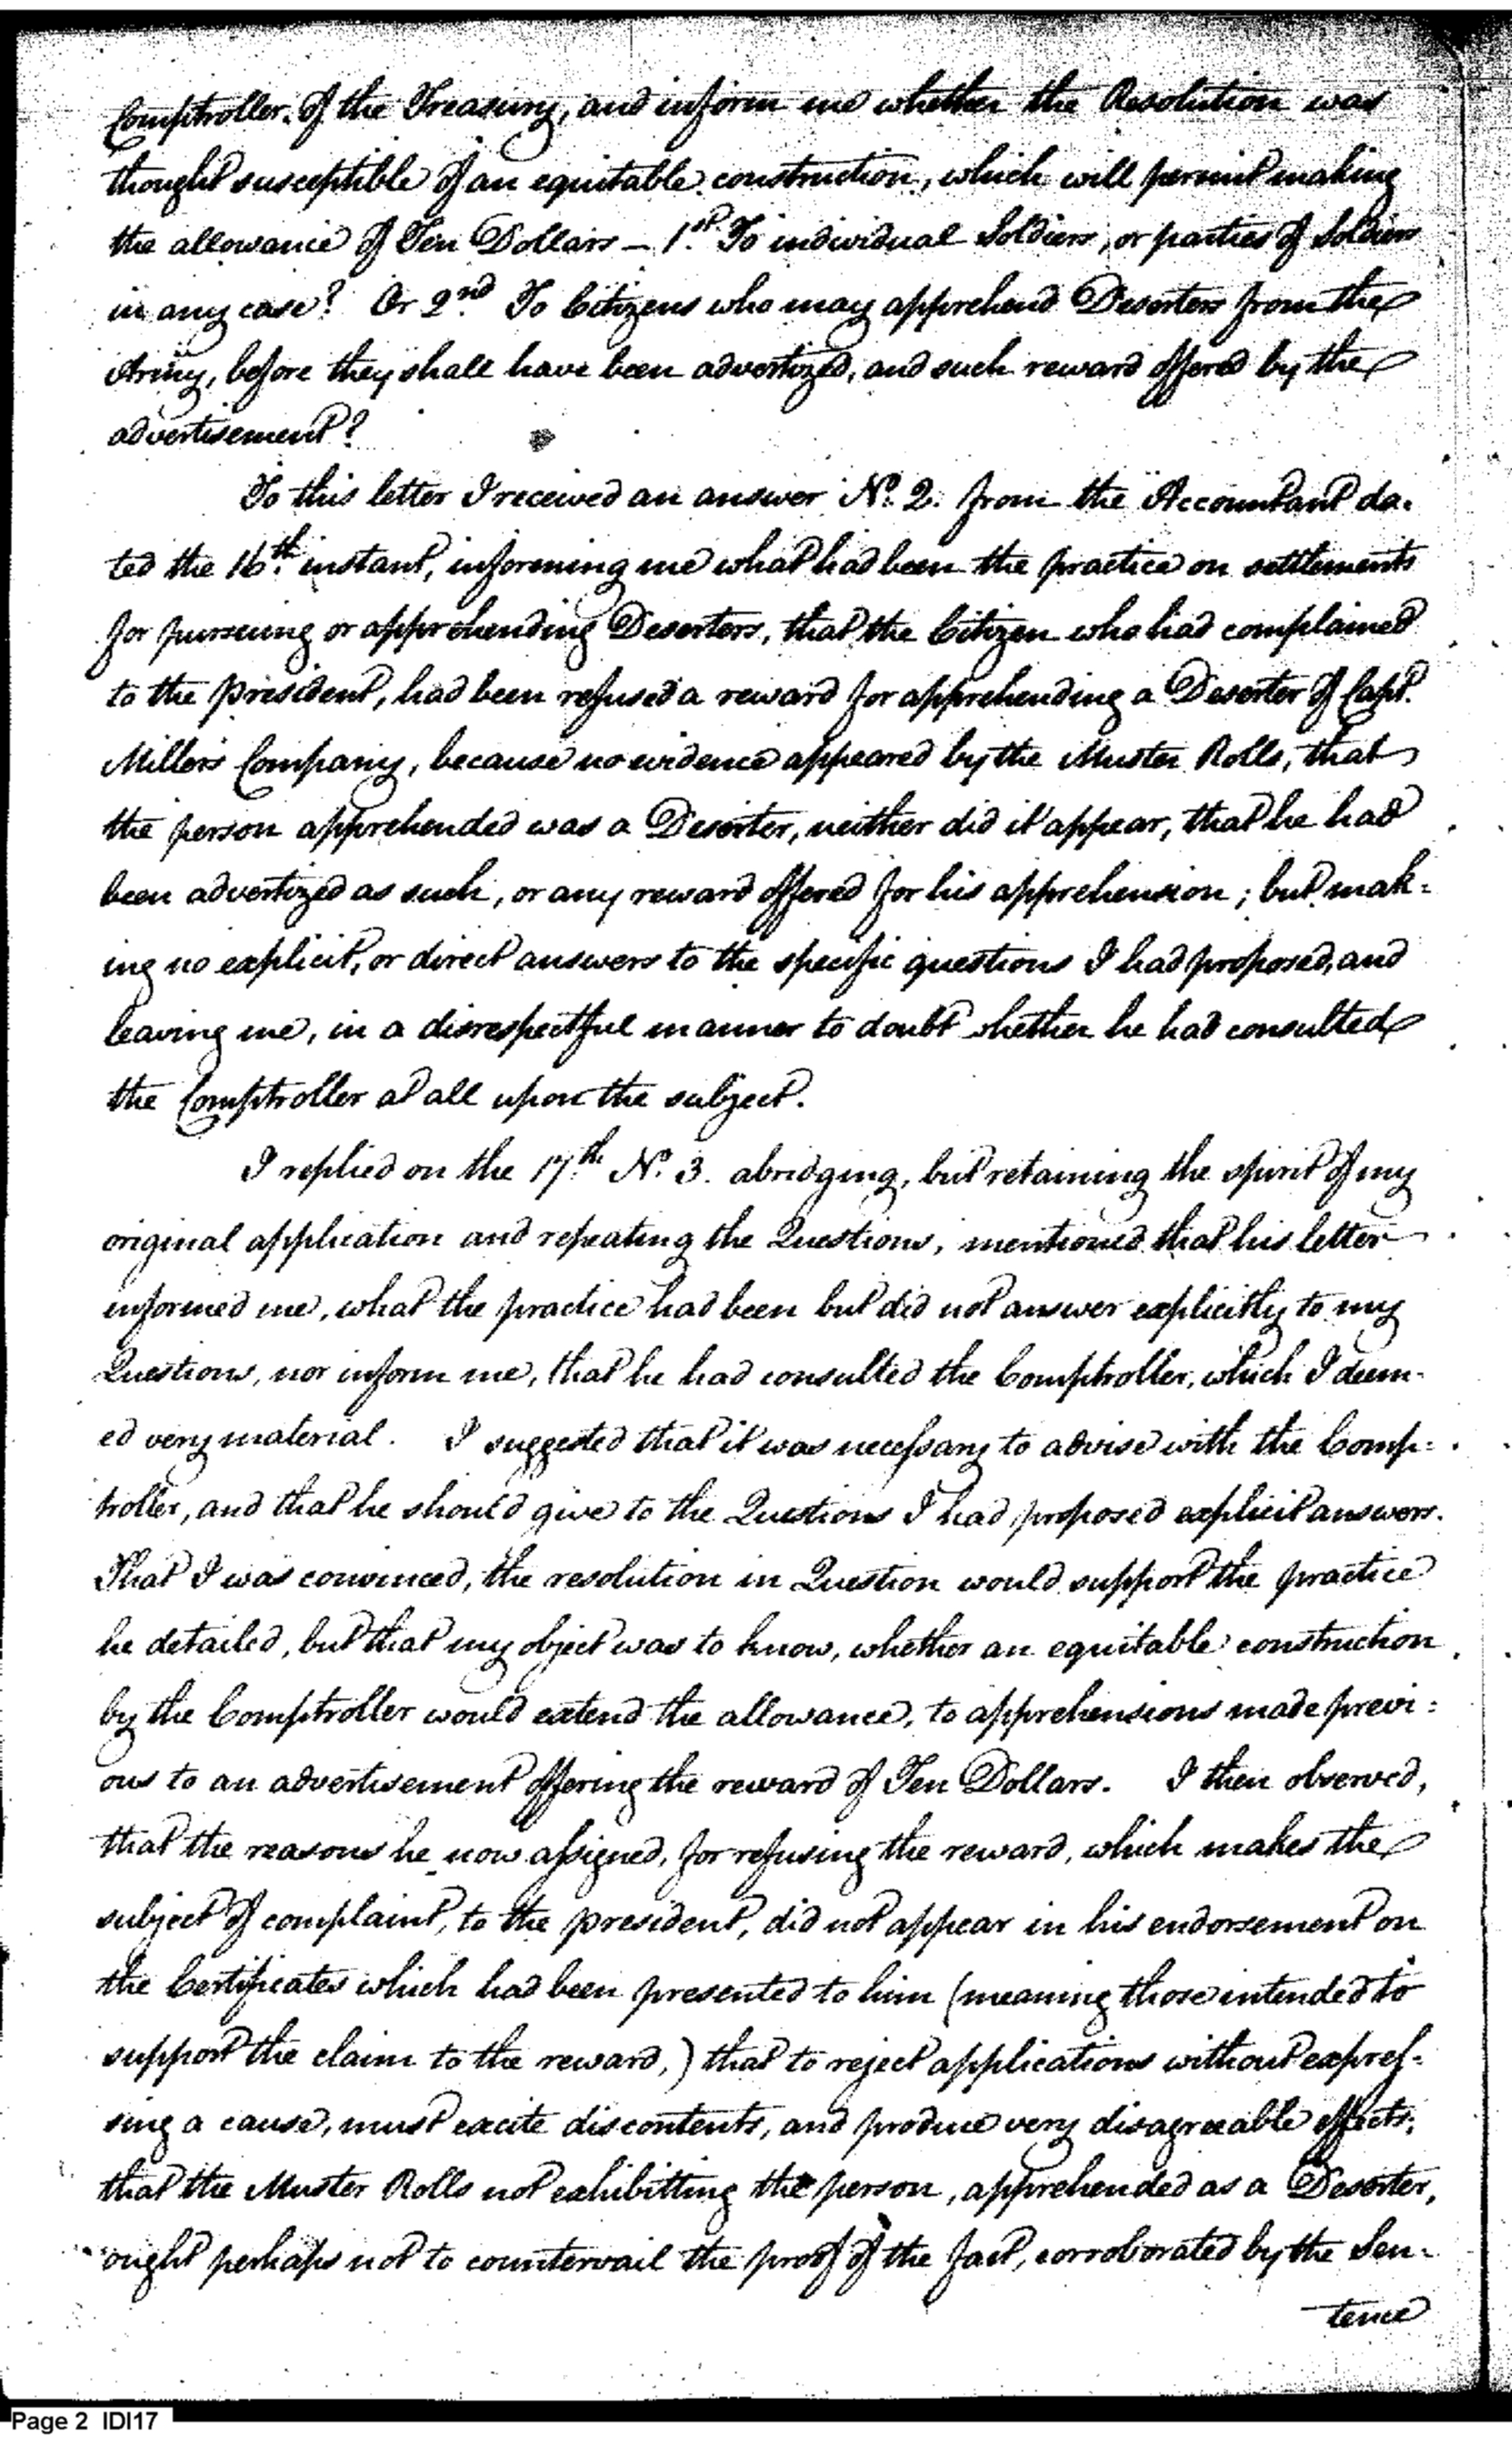 Comptroller. Of the Treasury, and inform me whether the Resolution was
thought susceptible of an equitable construction, which will permit making
the allowance of Ten Dollars — 1st. To individual Soldiers, or parties of Soldiers
in any case? Or 2nd. To Citizens who may apprehend Deserters from the
Army, before they shall have been advertized, and such reward offered by the
advertisement?
To this letter I received an answer No. 2. from the Accountant da-
ted the 16th. instant, informing me what had been the practice on settlements
for pursuing or apprehending Deserters, that the Citizen who had complained
to the president, had been refused a reward for apprehending a Deserter of Capt.
Millers Company, because no evidence appeared by the Muster Rolls, that
the person apprehended was a Deserter, neither did it appear, that he had
been advertized as such, or any reward offered for his apprehension; but mak=
ing no explicit, or direct answers to the specific questions I had proposed, and
leaving me, in a disrespectful manner to doubt whether he had consulted
the Comptroller at all upon the subject.
I replied on the 17th. No. 3. abridging, but retaining the spirit of my
original application and repeating the Questions, mentioned that his letter
informed me, what the practice had been but did not answer explicitly to my
Questions, nor inform me, that he had consulted the Comptroller, which I deem-
ed very material. I suggested that it was necessary to advise with the Comp=
troller, and that he should give to the Questions I had proposed explicit answers.
That I was convinced, the resolution in Question would support the practice
he detailed, but that my object was to know, whether an equitable construction
by the Comptroller would extend the allowance, to apprehensions made previ=
ous to an advertisement offering the reward of Ten Dollars. I then observed,
that the reasons he now assigned, for refusing the reward, which makes the
subject of complaint, to the president, did not appear in his endorsement on
the Certificates which had been presented to him (meaning those intended to
support the claim to the reward,) that to reject applications without expres-
sing a cause, must excite discontents, and produce very disagreeable effects;
that the Muster Rolls not exhibitting the person, apprehended as a Deserter,
ought perhaps not to countervail the proof of the fact, corroborated by the Sen-
tence
Page 2 IDI17